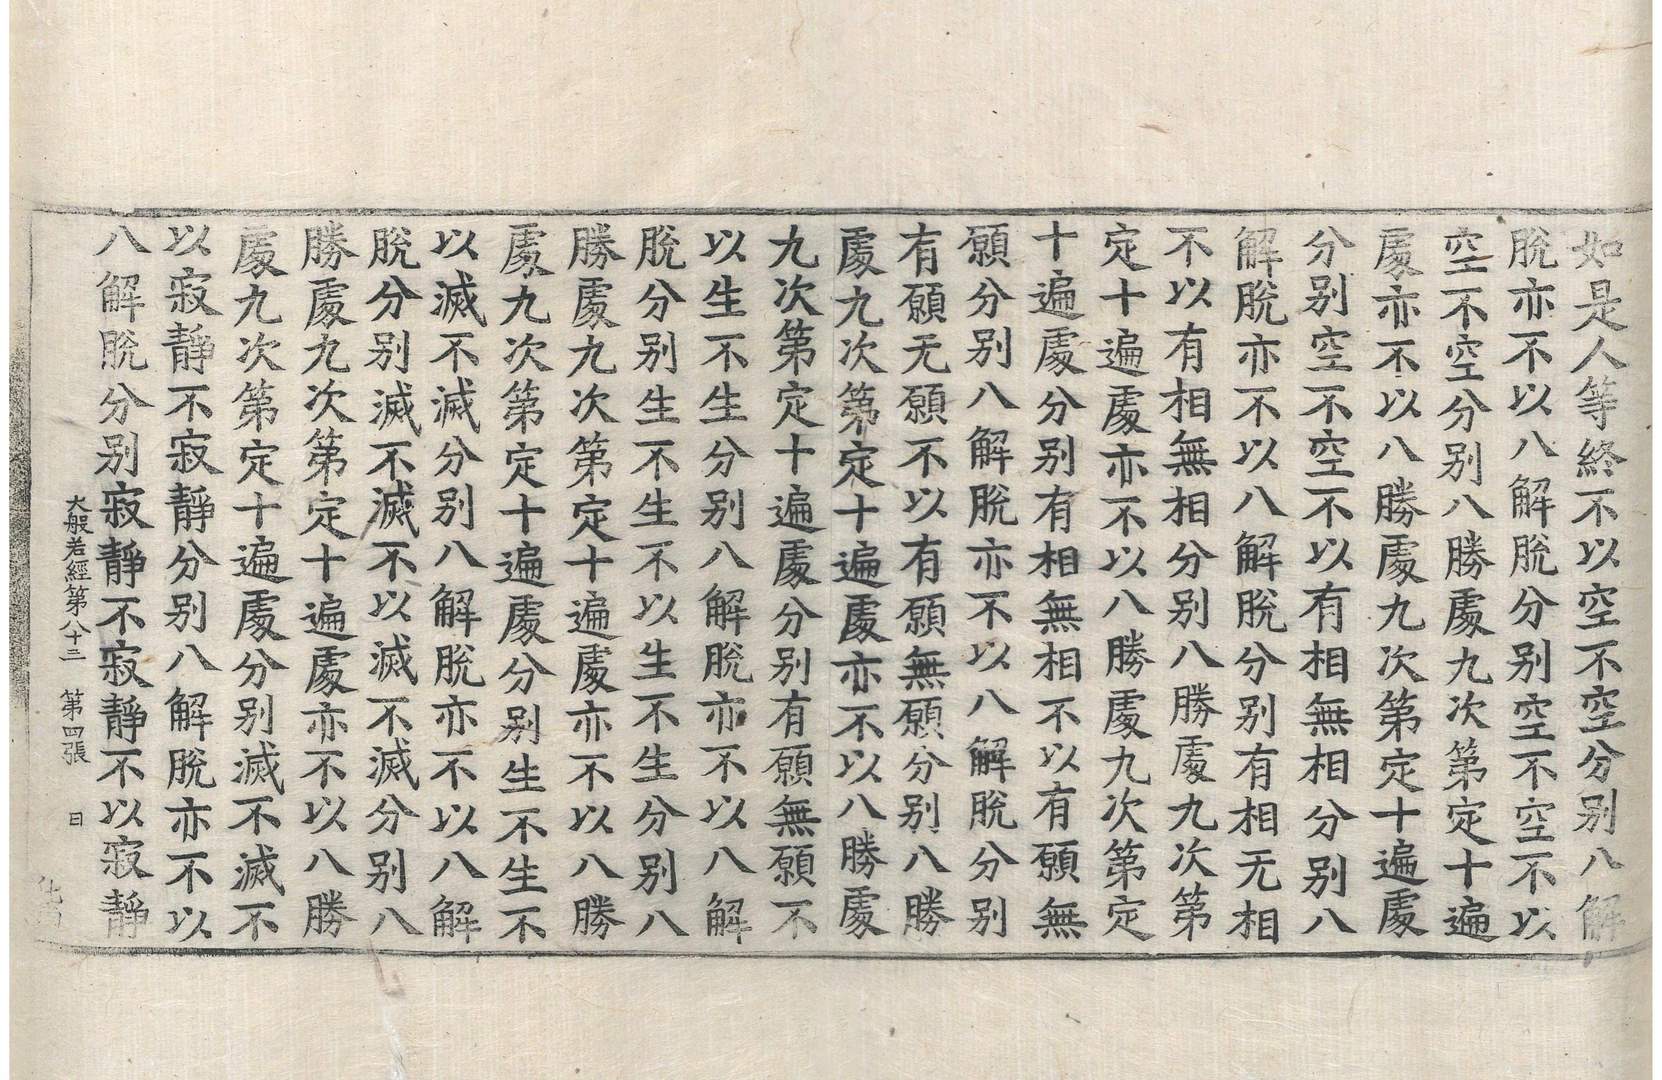 如是人等終不以空不空分别八解
脫亦不以八解脫分别空不空不以
空不空分别八勝處九次第定十遍
處亦不以八勝處九次第定十遍處
分别空不空不以有相無相分别八
解脫亦不以八解脫分别有相无相
不以有相無相分别八勝處九次第
定十遍處亦不以八勝處九次第定
十遍處分别有相無相不以有願無
願分别八解脫亦不以八解脫分别
有願无願不以有願無願分别八勝
處九次第定十遍處亦不以八勝處
九次第定十遍處分别有願無願不
以生不生分别八解脫亦不以八解
脫分别生不生不以生不生分别八
勝處九次第定十遍處亦不以八勝
處九次第定十遍處分别生不生不
以滅不滅分别八解脫亦不以八解
脫分别滅不滅不以滅不滅分别八
勝處九次第定十遍處亦不以八勝
處九次第定十遍處分别滅不滅不
以寂靜不寂靜分别八解脫亦不以
八解脫分别寂靜不寂靜不以寂靜
大般若經第八十三 第四張 日